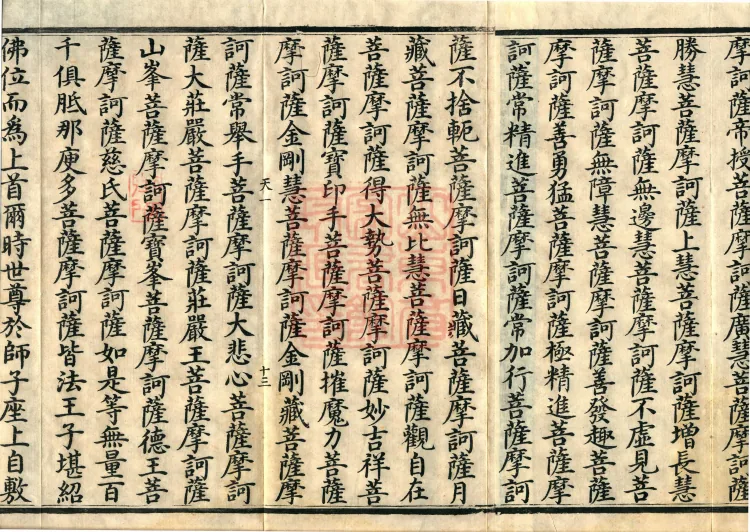 摩訶薩常授菩薩摩訶薩廣慧菩薩摩訶薩
勝慧菩薩摩訶薩上慧菩薩摩訶薩增長慧
菩薩摩訶薩無邊慧菩薩摩訶薩不虛見菩
薩摩訶薩無障慧菩薩摩訶薩善發趣菩薩
摩訶薩善勇猛菩薩摩訶薩極精進菩薩摩
訶薩常精進菩薩摩訶薩常加行菩薩摩訶
薩不捨軛菩薩摩訶薩日藏菩薩摩訶薩月
藏菩薩摩訶薩無比慧菩薩摩訶薩觀自在
菩薩摩訶薩得大勢菩薩摩訶薩妙吉祥菩
薩摩訶薩寶印手菩薩摩訶薩摧魔力菩薩
摩訶薩金剛慧菩薩摩訶薩金剛藏菩薩摩
天一 十三
訶薩常舉手菩薩摩訶薩大悲心菩薩摩訶
薩大莊嚴菩薩摩訶薩莊嚴王菩薩摩訶薩
山峯菩薩摩訶薩寶峯菩薩摩訶薩德王菩
薩摩訶薩慈氏菩薩摩訶薩如是等無量百
千俱胝那庾多菩薩摩訶薩皆法王子堪紹
佛位而爲上首爾時世尊於師子座上自敷